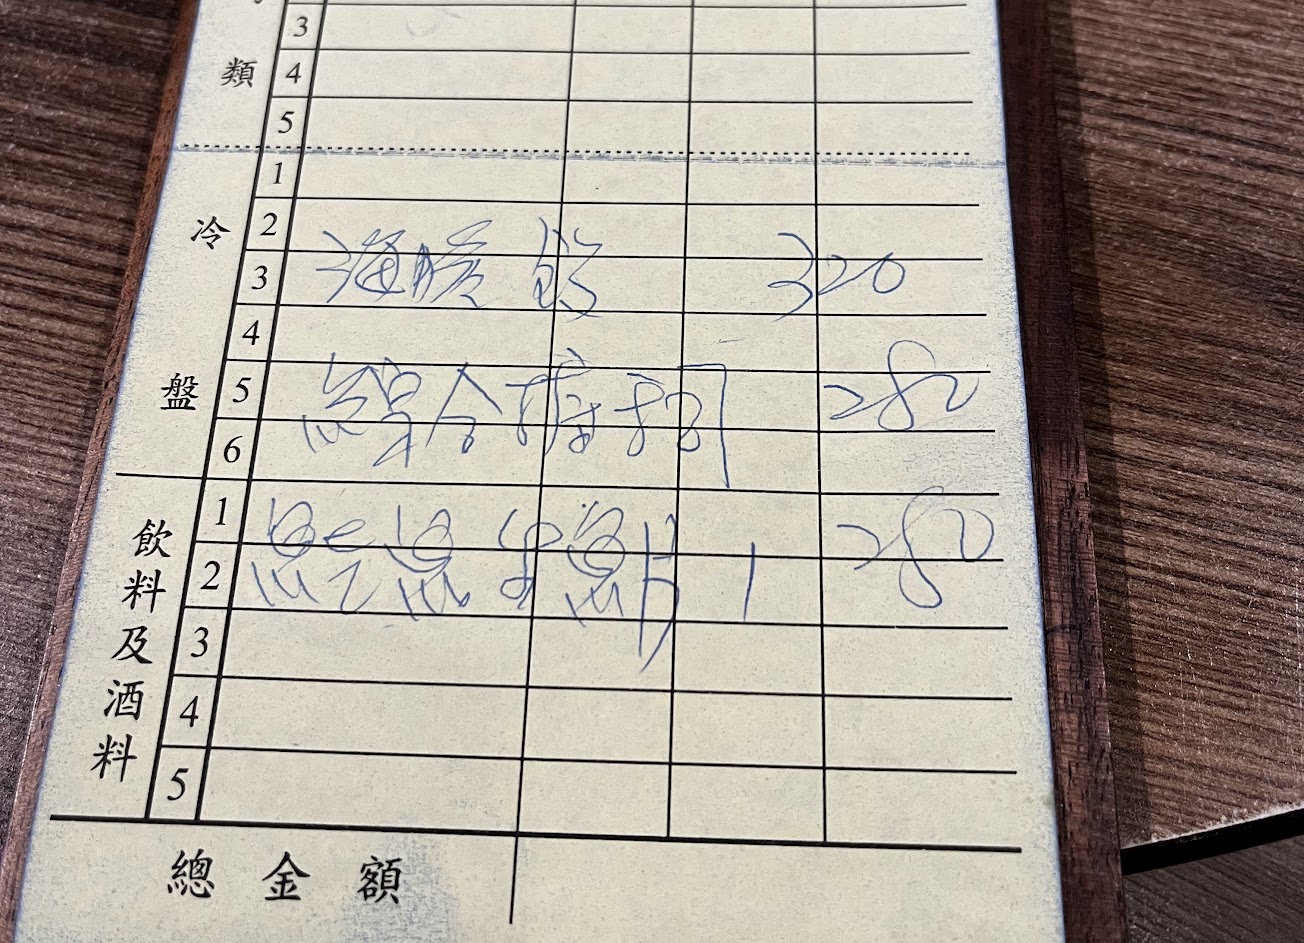 類
3
4
5
冷盤
1
2
3
海膽 320
4
5
綜合 280
6
飲料及酒料
1
生魚片 1 280
2
3
4
5
總金額